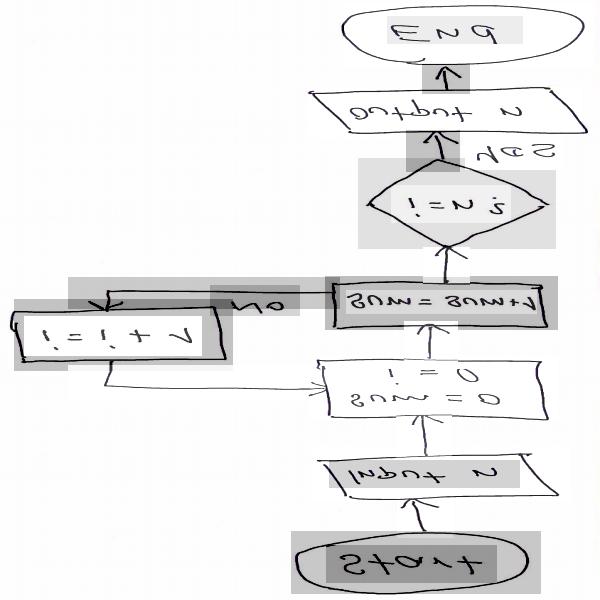 Start
Input N
sum = 0
i = 0
sum = sum+1
NO
i = i + 1
i = N ?
Yes
Output N
END